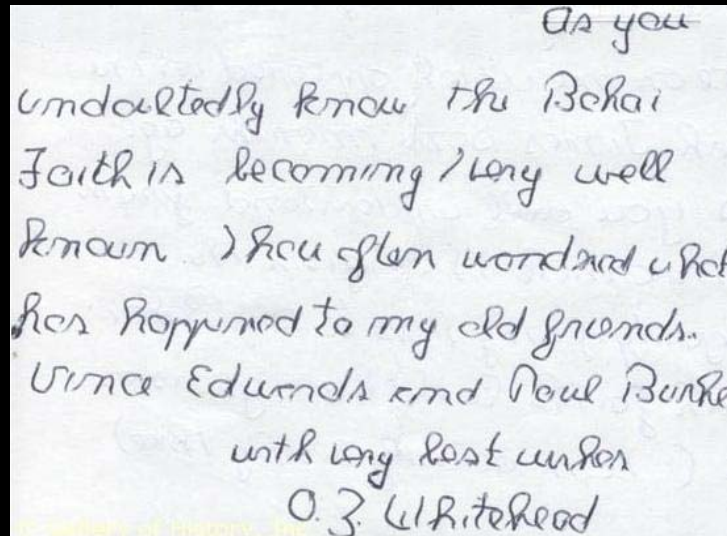 As you
undoubtedly know the Bahai
Faith is becoming very well
known I have often wondered what
has happened to my old friends.
Vince Edwards and Paul Burke
with very best wishes
O. Z. Whitehead
Gallery of History, Inc